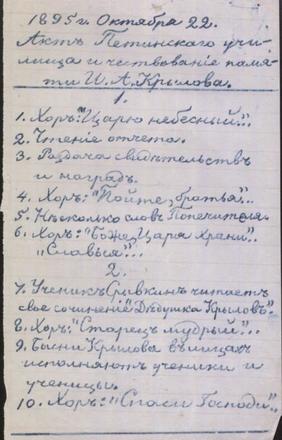 1895 г. Октября 22.
Актъ Петинскаго учи-
лища и чествованіе памя-
ти И. А. Крылова.
1.
1. Хоръ: "Царю небесный"...
2. Чтеніе отчета.
3. Раздача свидѣтельствъ
и наградъ.
4. Хоръ: "Пойте, братья"...
5. Нѣсколько словъ Попечителя.
6. Хоръ: "Боже, Царя Храни".
"Славься"...
2.
7. Ученикъ читаетъ
свое сочиненіе "Дѣдушка Крыловъ".
8. Хоръ: "Старецъ мудрый"...
9. Басни Крылова въ лицахъ
исполняютъ ученики и
ученицы.
10. Хоръ: "Спаси Господи"...